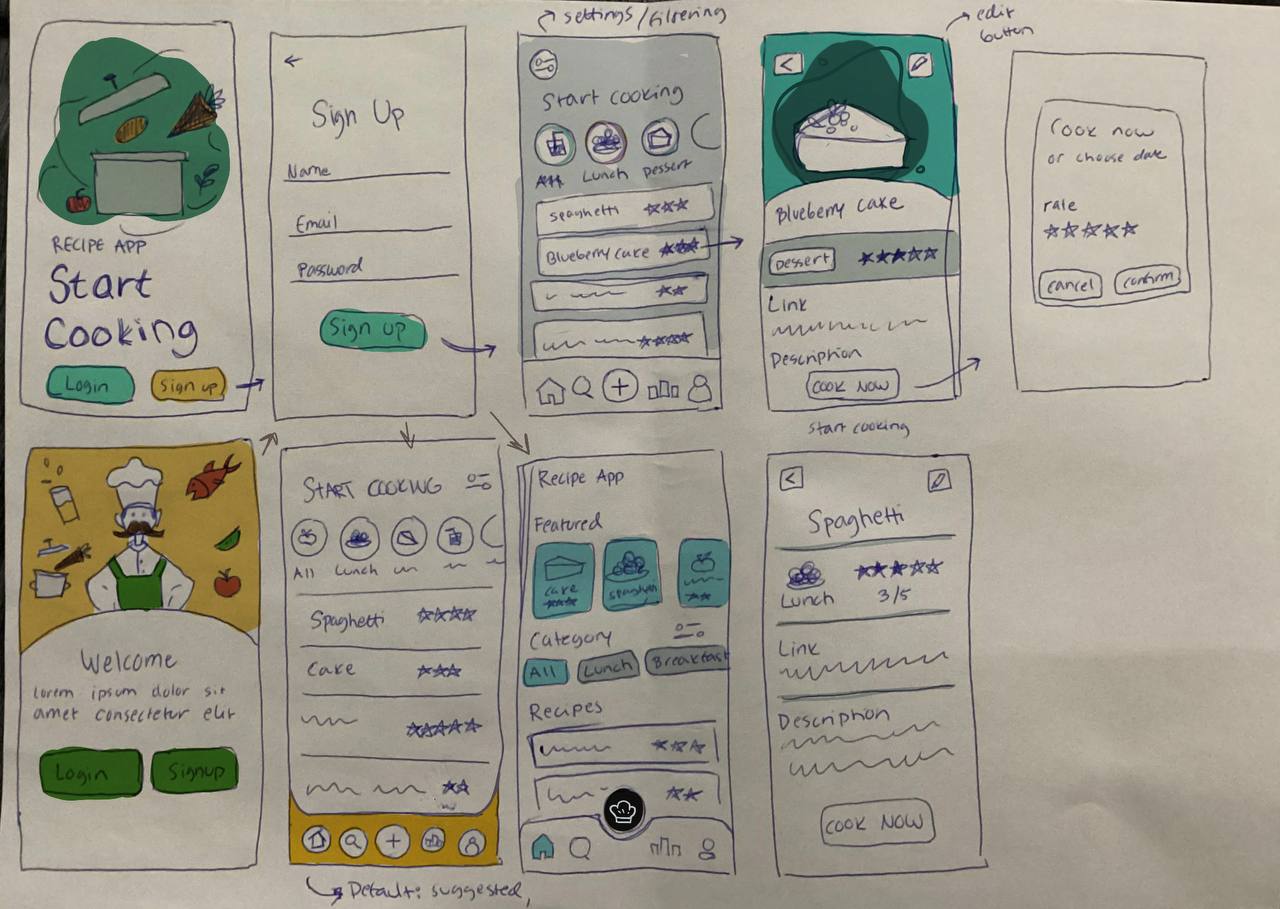 settings/filtering
edit
button
RECIPE APP
Start
Cooking
Login
Sign up
Sign Up
Name
Email
Password
Sign up
Start cooking
All
Lunch
Dessert
spaghetti
Blueberry cake
Blueberry cake
Dessert
Link
Description
COOK NOW
start cooking
Cook now
or choose date
rate
cancel
confirm
Welcome
Lorem ipsum dolor sit
amet consectetur elit
Login
Signup
START COOKING
All
Lunch
Spaghetti
Cake
Default: suggested,
Recipe App
Featured
cake
spaghetti
Category
All
Lunch
Breakfast
Recipes
Spaghetti
Lunch
3/5
Link
Description
COOK NOW